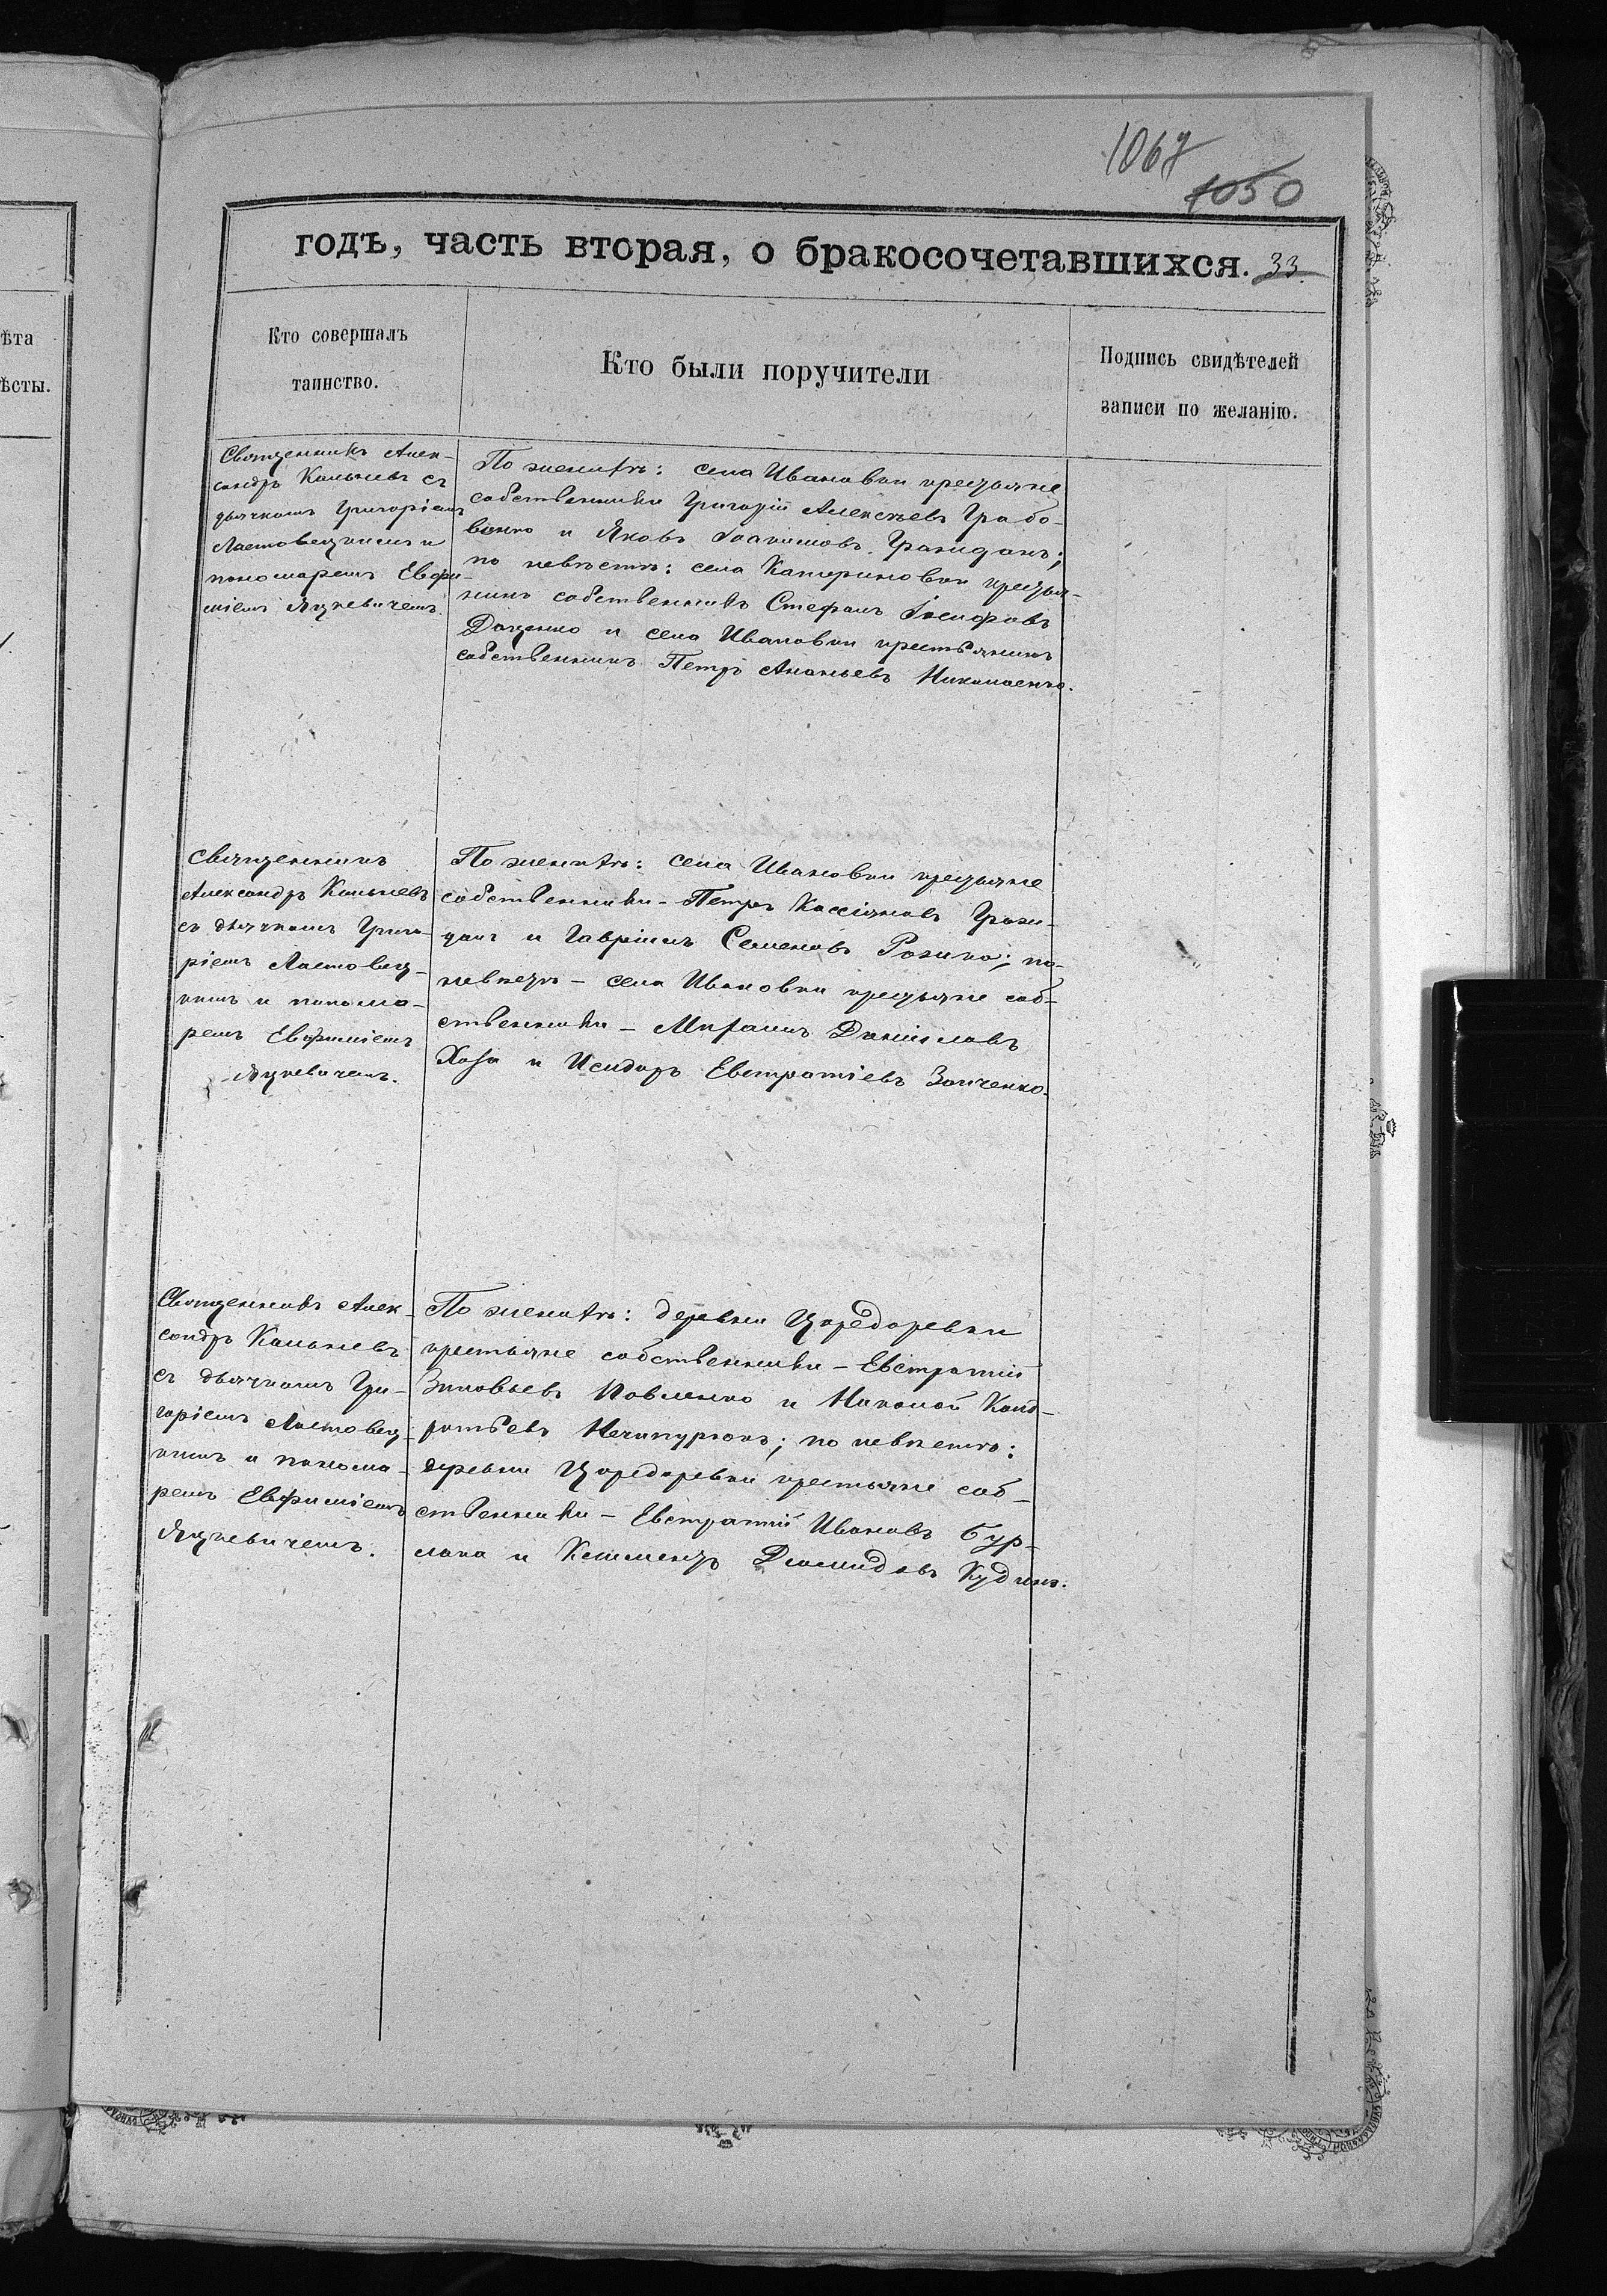 1067
1050
годъ, часть вторая, о бракосочетавшихся. 33.
ѣта
ѣсты.
Кто совершалъ
таинство.
Кто были поручители
Подпись свидѣтелей
записи по желанію.
Священникъ Алек-
сандръ Кольневъ съ
дьячкомъ Григоріемъ
Ластовецкимъ и
пономаремъ Евфи-
міемъ Яцкевичемъ.
По женихѣ: села Ивановки крестьяне
собственники Григорій Алексѣевъ Грабо-
венко и Яковъ Іоакимовъ Гражданъ;
по невѣстѣ: села Катериновки крестья-
нинъ собственникъ Стефанъ Іосифовъ
Даценко и села Ивановки крестьянинъ
собственникъ Петръ Ананьевъ Николаенко.
Священникъ
Александръ Кольневъ
съ дьячкомъ Григо-
ріемъ Ластовец-
кимъ и понома-
ремъ Евфиміемъ
Яцкевичемъ.
По женихѣ: села Ивановки крестьяне
собственники - Петръ Кассіановъ Граж-
данъ и Гавріилъ Семеновъ; по-
невѣстѣ - села Ивановки крестьяне соб-
ственники - Даниловъ
Хоза и Исидоръ Евстратіевъ Заиченко.
Священникъ Алек-
сандръ Кольневъ
съ дьячкомъ Гри-
горіемъ Ластовец-
кимъ и понома-
ремъ Евфиміемъ
Яцкевичемъ.
По женихѣ: деревни Царедаровки
крестьяне собственники - Евстратій
Зиновьевъ Павленко и Конд-
ратьевъ Нечипурюкъ; по невѣстѣ:
деревни Царедаровки крестьяне соб-
ственники - Евстратій Ивановъ Бур-
лака и Діомидовъ